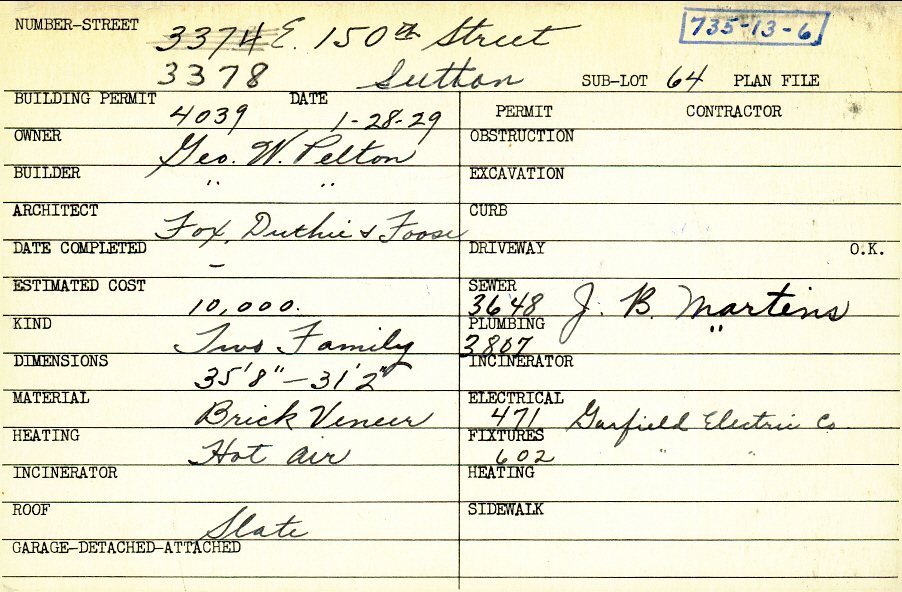 NUMBER-STREET 3374 E. 150th Street 735-13-6
3378 Sutton SUB-LOT 64 PLAN FILE
BUILDING PERMIT 4039 DATE 1-28-29
OWNER Geo. W. Pelton
BUILDER " "
ARCHITECT Fox, Duthie & Foose
DATE COMPLETED -
ESTIMATED COST 10,000.
KIND Two Family
DIMENSIONS 35'8" - 31'2"
MATERIAL Brick Veneer
HEATING Hot air
INCINERATOR
ROOF Slate
GARAGE-DETACHED-ATTACHED
PERMIT CONTRACTOR
OBSTRUCTION
EXCAVATION
CURB
DRIVEWAY O.K.
SEWER 3648 J. B. Martens
PLUMBING 3807 "
INCINERATOR
ELECTRICAL 471 Garfield Electric Co
FIXTURES 602 " "
HEATING
SIDEWALK